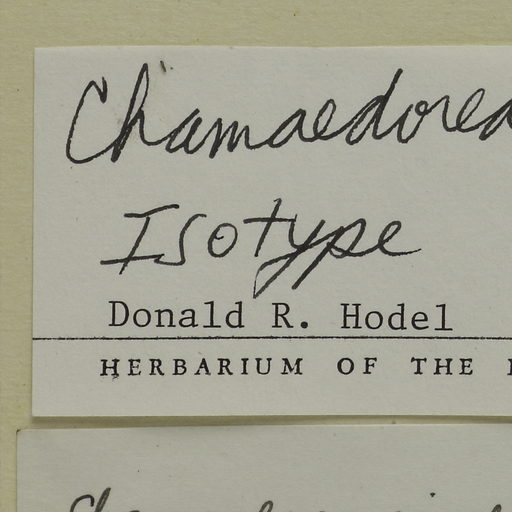 Chamaedorea
Isotype
Donald R. Hodel
HERBARIUM OF THE